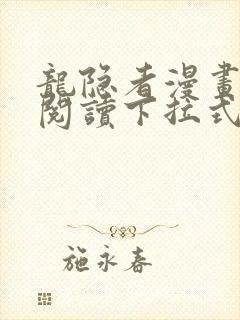 龍隐者漫畫
閱讀下拉式
施永春